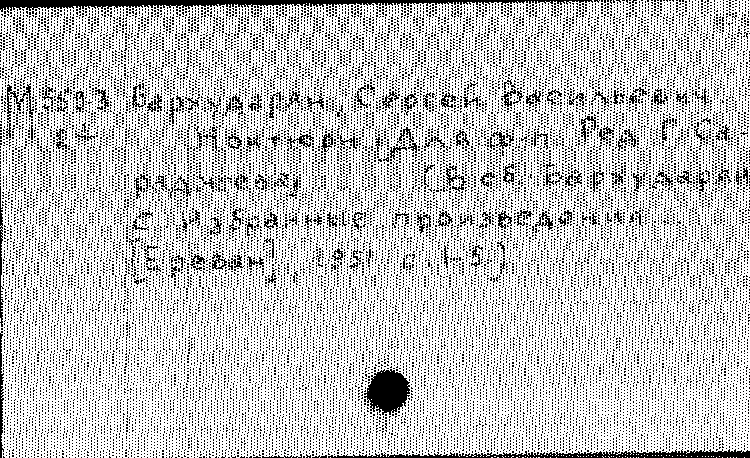 М 5593 Бархударян, Сергей Васильевич
Ноктюрн. [Для ф-п. Ред. Г. Са-
раджева]. (В сб: Бархударян
С. Избранные произведения.
[Ереван], 1951 с. 1-5.)